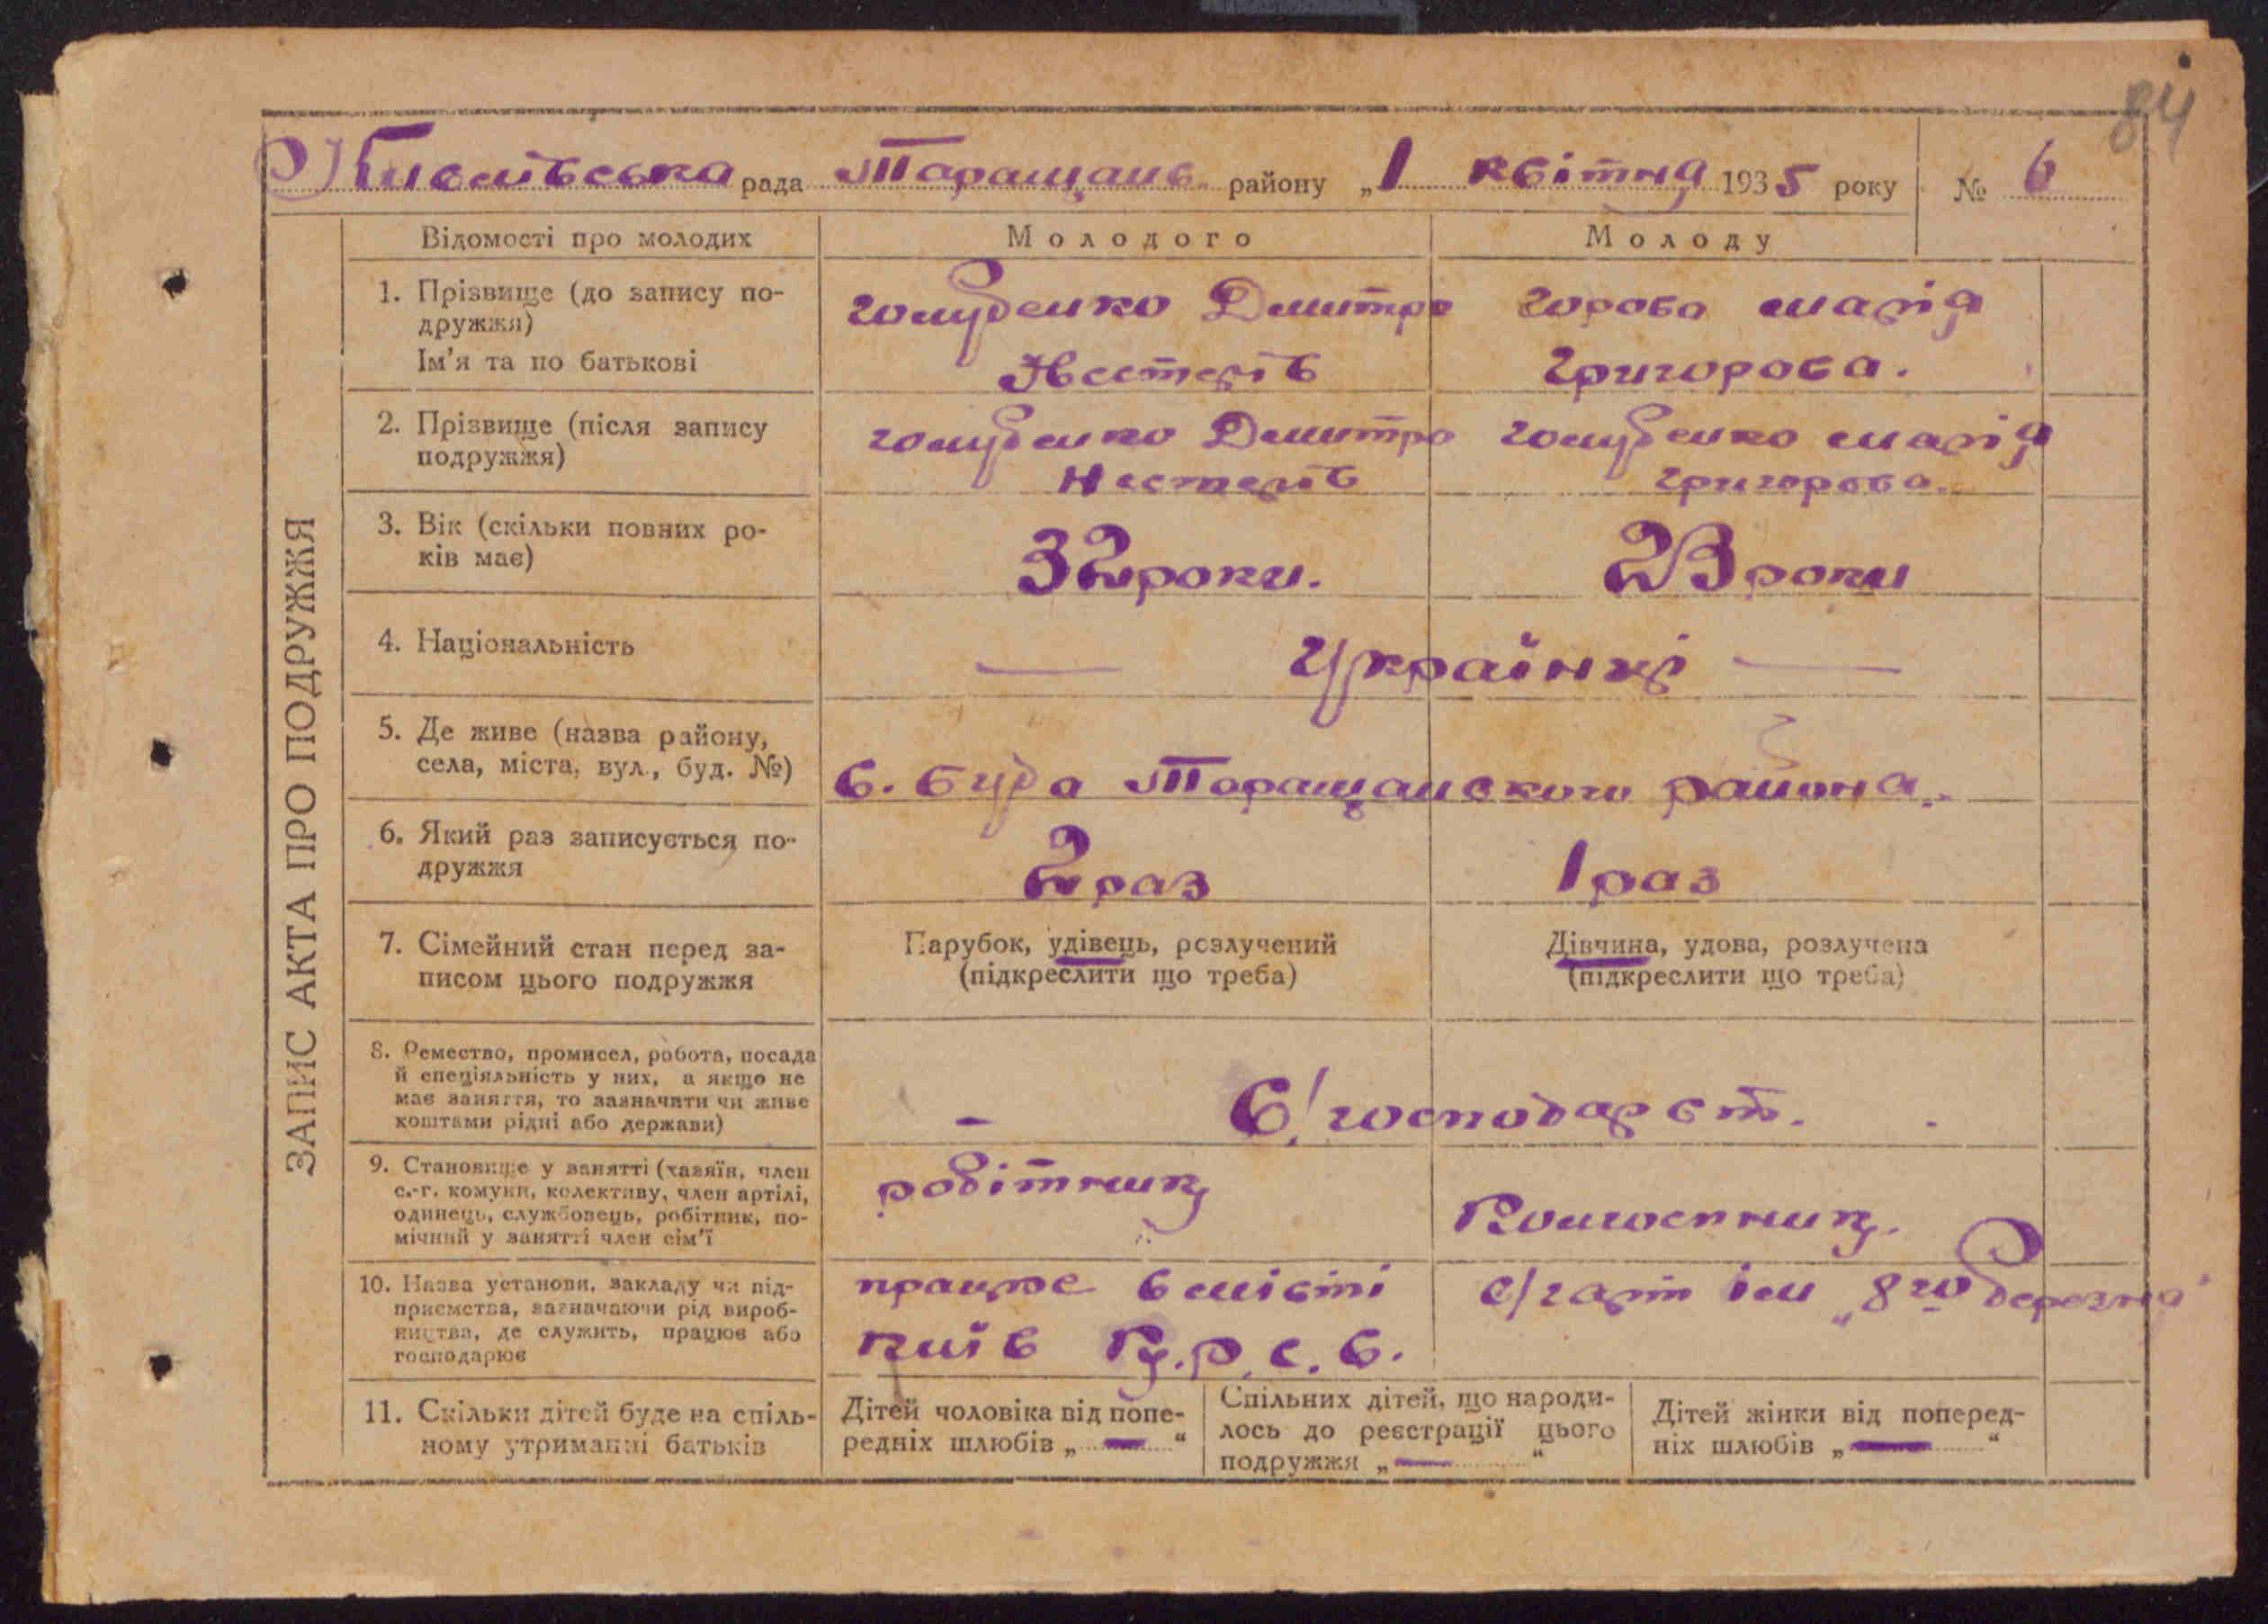 84
рада Таращанс. району „1 квітня 1935 року № 6
ЗАПИС АКТА ПРО ПОДРУЖЖЯ
Відомості про молодих Молодого Молоду
1. Прізвище (до запису по-
дружжя)
Ім'я та по батькові
голубенко Дмитро
Нестерів
горова марія
григорова.
2. Прізвище (після запису
подружжя)
голубенко Дмитро
Нестерів
голубенко марія
григорова.
3. Вік (скільки повних ро-
ків має)
32 роки.
23 роки
4. Національність
— Українці —
5. Де живе (назва району,
села, міста, вул., буд. №)
с. буда Таращанского района.
6. Який раз записується по-
дружжя
2 раз
1 раз
7. Сімейний стан перед за-
писом цього подружжя
Парубок, удівець, розлучений
(підкреслити що треба)
Дівчина, удова, розлучена
(підкреслити що треба)
8. Ремество, промисел, робота, посада
й спеціяльність у них, а якщо не
має заняття, то зазначити чи живе
коштами рідні або держави)
— С/господарст.
9. Становище у занятті (хазяїн, член
с.-г. комуни, колективу, член артілі,
одинець, службовець, робітник, по-
мічний у занятті член сім'ї
робітник
Колгоспник.
10. Назва установи, закладу чи під-
приємства, зазначаючи рід вироб-
ництва, де служить, працює або
господарює
працює в місті
київ
с/г арт ім „8го березня
11. Скільки дітей буде на спіль-
ному утриманні батьків
Дітей чоловіка від попе-
редніх шлюбів „—“
Спільних дітей, що народи-
лось до реєстрації цього
подружжя „—“
Дітей жінки від поперед-
ніх шлюбів „—“